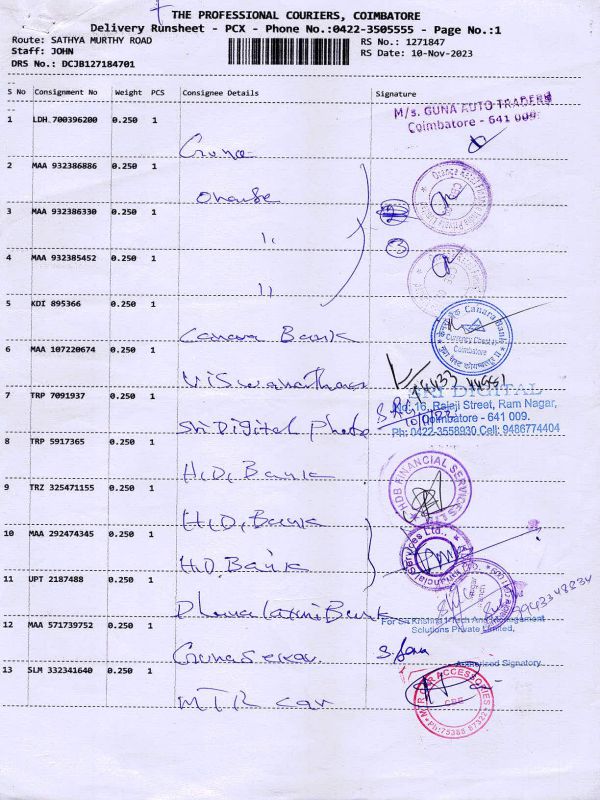 THE PROFESSIONAL COURIERS, COIMBATORE
Delivery Runsheet - PCX - Phone No.:0422-3505555 - Page No.:1
Route: SATHYA MURTHY ROAD
RS No.: 1271847
Staff: JOHN
RS Date: 10-Nov-2023
DRS No.: DCJB127184701
S No Consignment No Weight PCS Consignee Details Signature
1 LDH 700396200 0.250 1
M/s. GUNA AUTO TRADERS
Coimbatore - 641 009.
Guna
2 MAA 932386886 0.250 1
3 MAA 932386330 0.250 1
11
3
4 MAA 932385452 0.250 1
11
5 KDI 895366 0.250 1
Canara Bank
Canara Bank
Currency Chest
Coimbatore
6 MAA 107220674 0.250 1
7 TRP 7091937 0.250 1
SRI DIGITAL
No. 16, Rajaji Street, Ram Nagar,
Coimbatore - 641 009.
Ph: 0422-3558930 Cell: 9486774404
Sri Digital Photo
8 TRP 5917365 0.250 1
H.D. Bank
9 TRZ 325471155 0.250 1
HDB FINANCIAL SERVICES
H.D. Bank
10 MAA 292474345 0.250 1
Financial Services Ltd.,
H.D. Bank
11 UPT 2187488 0.250 1
9943348834
Dhanalaxmi Bank
12 MAA 571739752 0.250 1
For Sri Krishna I-Tech And Management
Solutions Private Limited,
Gunasekar
Authorised Signatory
13 SLM 332341640 0.250 1
CAR ACCESSORIES
CBE
Ph:75388 67322
MTR Car